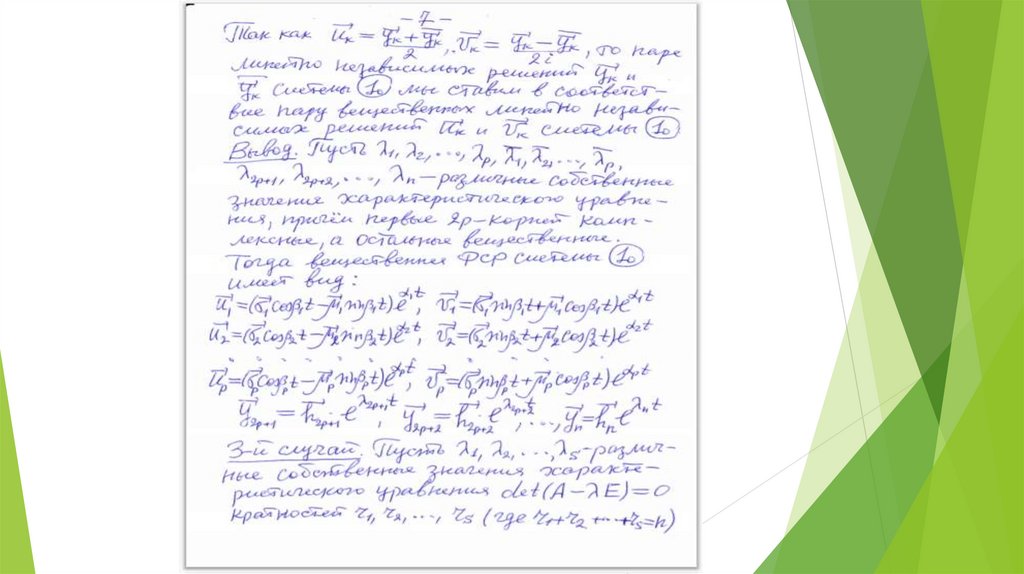 - 7 -
Так как u⃗ₖ = (y⃗ₖ + y̅⃗ₖ)/2, v⃗ₖ = (y⃗ₖ − y̅⃗ₖ)/2i, то паре
линейно независимых решений y⃗ₖ и
y̅⃗ₖ системы (1₀) мы ставим в соответст-
вие пару вещественных линейно незави-
симых решений u⃗ₖ и v⃗ₖ системы (1₀)
Вывод. Пусть λ₁, λ₂, ..., λₚ, λ̅₁, λ̅₂, ..., λ̅ₚ,
λ₂ₚ₊₁, λ₂ₚ₊₂, ..., λₙ – различные собственные
значение характеристического уравне-
ния, причём первые 2p – корней комп-
лексные, а остальные вещественные.
Тогда вещественная ФСР системы (1₀)
имеет вид:
u⃗₁ = (σ⃗₁cosβ₁t − μ⃗₁sinβ₁t)e^{α₁t}, v⃗₁ = (σ⃗₁sinβ₁t + μ⃗₁cosβ₁t)e^{α₁t}
u⃗₂ = (σ⃗₂cosβ₂t − μ⃗₂sinβ₂t)e^{α₂t}, v⃗₂ = (σ⃗₂sinβ₂t + μ⃗₂cosβ₂t)e^{α₂t}
. . . . . . . . . .
u⃗ₚ = (σ⃗ₚcosβₚt − μ⃗ₚsinβₚt)e^{αₚt}, v⃗ₚ = (σ⃗ₚsinβₚt + μ⃗ₚcosβₚt)e^{αₚt}
y⃗₂ₚ₊₁ = h⃗₂ₚ₊₁·e^{λ₂ₚ₊₁t}, y⃗₂ₚ₊₂ = h⃗₂ₚ₊₂·e^{λ₂ₚ₊₂t}, ..., y⃗ₙ = h⃗ₙe^{λₙt}
3-й случай. Пусть λ₁, λ₂, ..., λₛ – различ-
ные собственные значения характе-
ристического уравнения det(A − λE) = 0
кратностей r₁, r₂, ..., rₛ (где r₁ + r₂ + ... + rₛ = n)